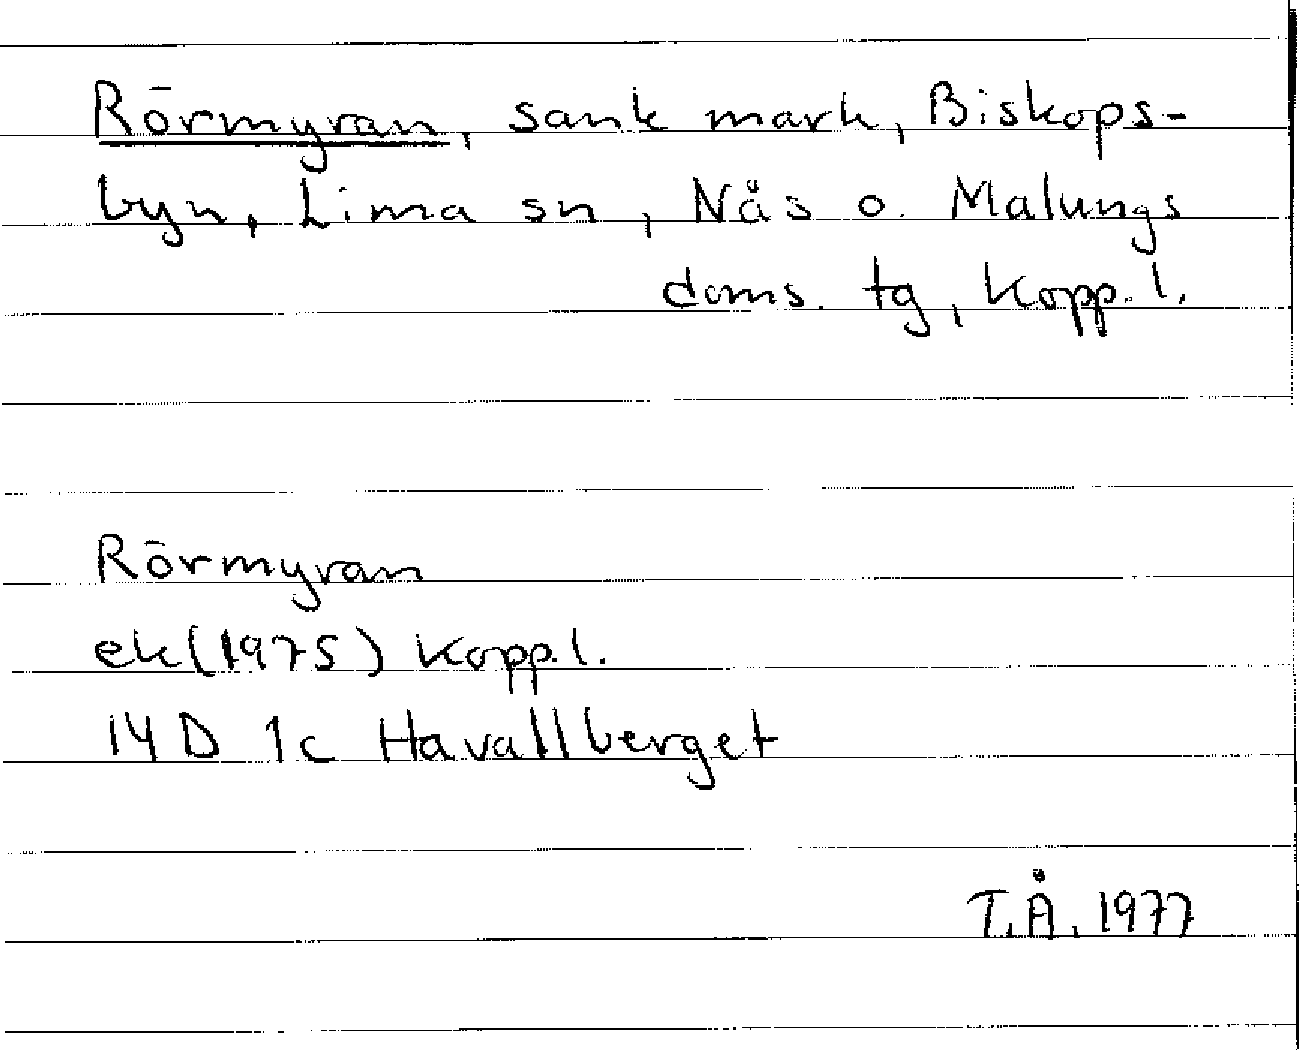 Rörmyran, sank mark, Biskops-
byn, Lima sn, Nås o. Malungs
doms. tg, Kopp. l.
Rörmyran
ek (1975) Kopp. l.
14 D 1c Havallberget
T.Å. 1977